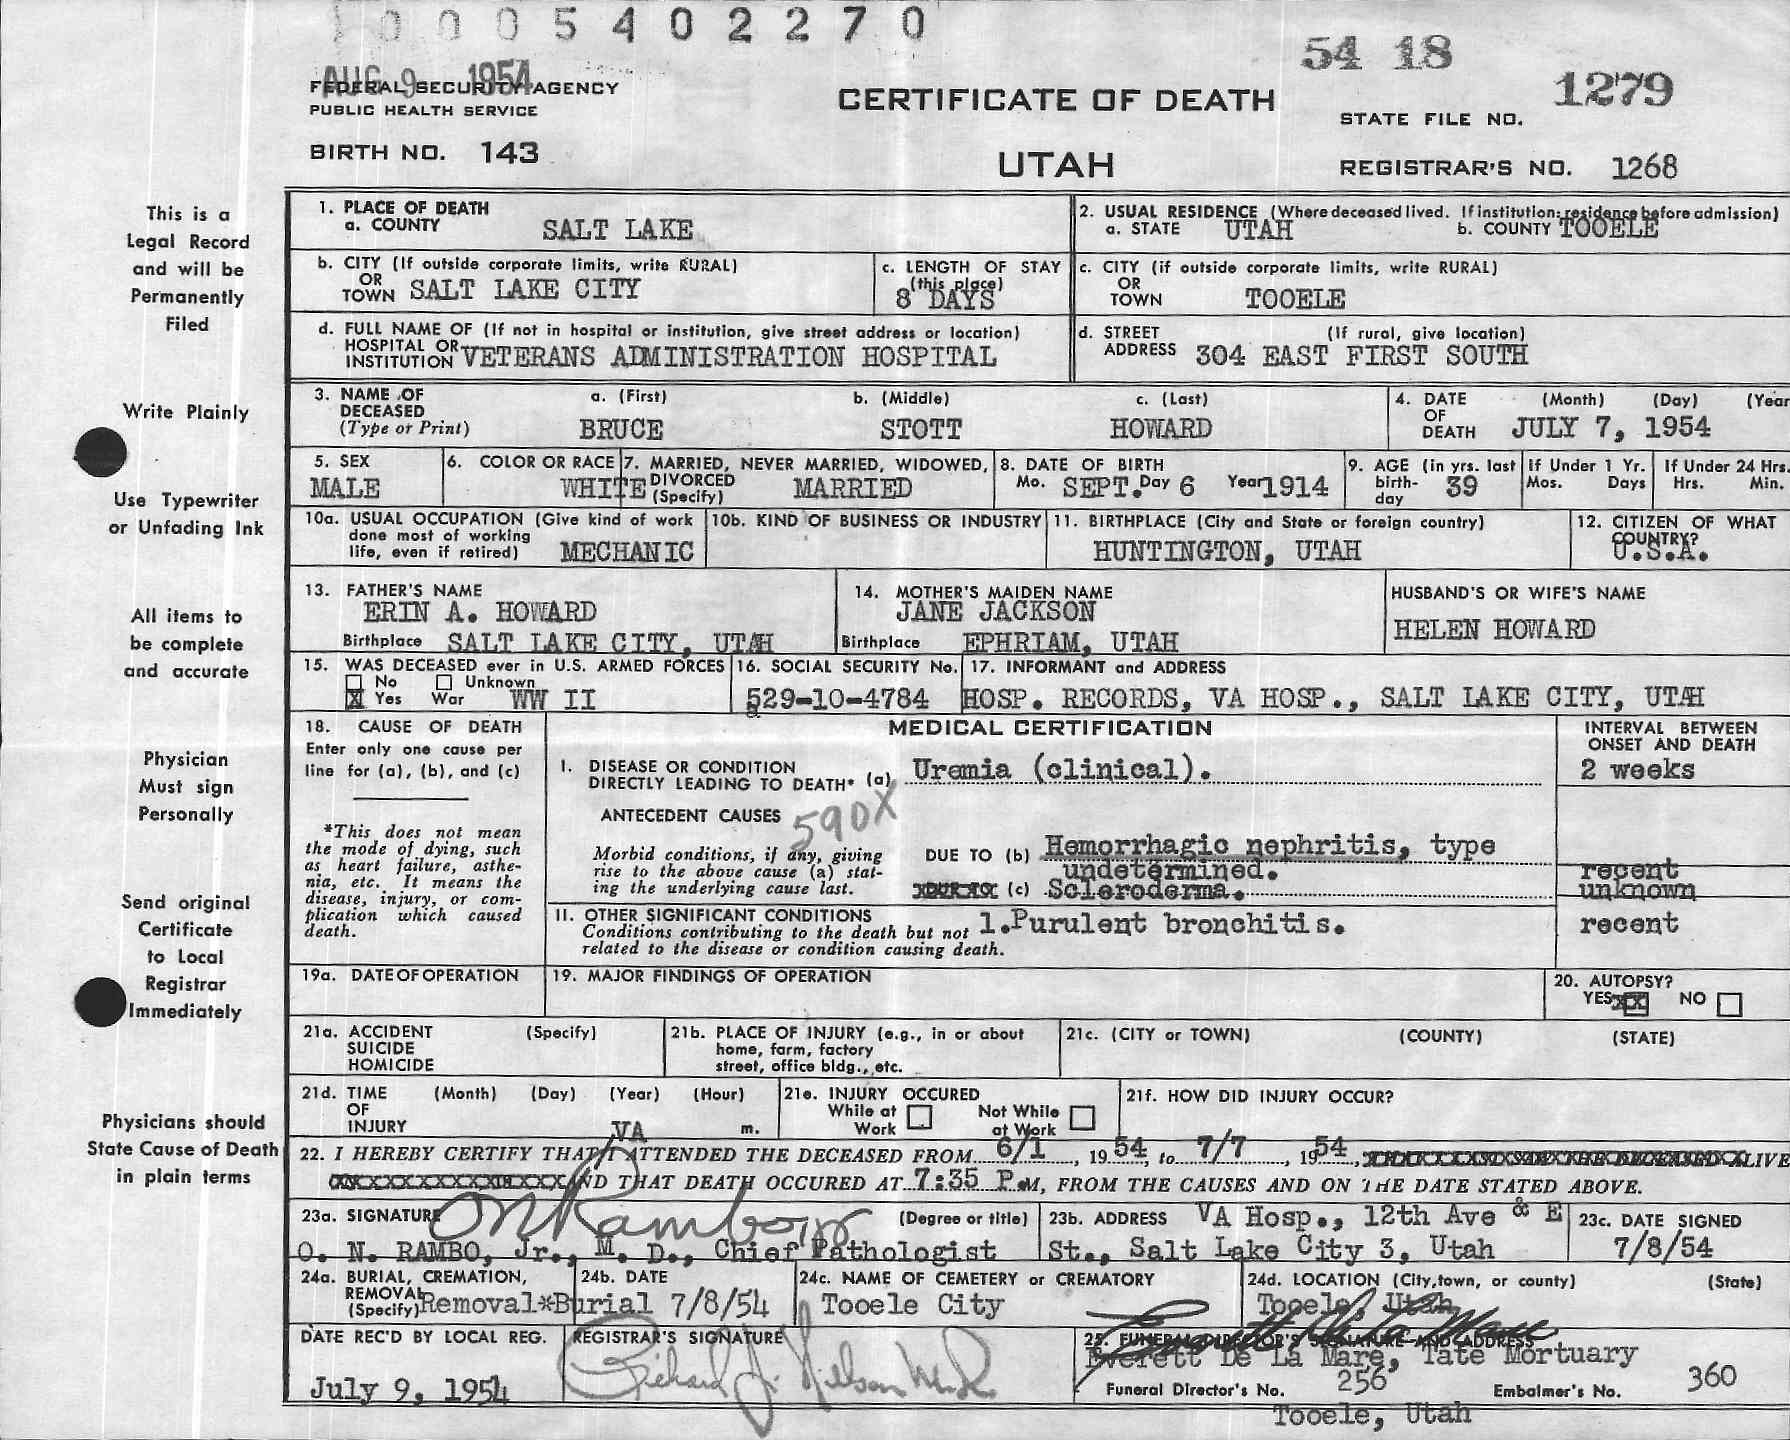 0005402270
54 18
AUG 9 1954
FEDERAL SECURITY AGENCY
PUBLIC HEALTH SERVICE
CERTIFICATE OF DEATH
UTAH
STATE FILE NO. 1279
BIRTH NO. 143
REGISTRAR'S NO. 1268
This is a
Legal Record
and will be
Permanently
Filed
Write Plainly
Use Typewriter
or Unfading Ink
All items to
be complete
and accurate
Physician
Must sign
Personally
Send original
Certificate
to Local
Registrar
Immediately
Physicians should
State Cause of Death
in plain terms
1. PLACE OF DEATH
a. COUNTY SALT LAKE
2. USUAL RESIDENCE (Where deceased lived. If institution: residence before admission)
a. STATE UTAH b. COUNTY TOOELE
b. CITY (If outside corporate limits, write RURAL)
OR
TOWN SALT LAKE CITY
c. LENGTH OF STAY
(this place)
8 DAYS
c. CITY (if outside corporate limits, write RURAL)
OR
TOWN TOOELE
d. FULL NAME OF (If not in hospital or institution, give street address or location)
HOSPITAL OR
INSTITUTION VETERANS ADMINISTRATION HOSPITAL
d. STREET (If rural, give location)
ADDRESS 304 EAST FIRST SOUTH
3. NAME OF
DECEASED
(Type or Print)
a. (First) b. (Middle) c. (Last)
BRUCE STOTT HOWARD
4. DATE (Month) (Day) (Year
OF
DEATH JULY 7, 1954
5. SEX
MALE
6. COLOR OR RACE
WHITE
7. MARRIED, NEVER MARRIED, WIDOWED,
DIVORCED
(Specify) MARRIED
8. DATE OF BIRTH
Mo. SEPT. Day 6 Year 1914
9. AGE (in yrs. last
birth-
day 39
If Under 1 Yr.
Mos. Days
If Under 24 Hrs.
Hrs. Min.
10a. USUAL OCCUPATION (Give kind of work
done most of working
life, even if retired) MECHANIC
10b. KIND OF BUSINESS OR INDUSTRY
11. BIRTHPLACE (City and State or foreign country)
HUNTINGTON, UTAH
12. CITIZEN OF WHAT
COUNTRY?
U.S.A.
13. FATHER'S NAME
ERIN A. HOWARD
Birthplace SALT LAKE CITY, UTAH
14. MOTHER'S MAIDEN NAME
JANE JACKSON
Birthplace EPHRIAM, UTAH
HUSBAND'S OR WIFE'S NAME
HELEN HOWARD
15. WAS DECEASED ever in U.S. ARMED FORCES
No Unknown
X Yes War WW II
16. SOCIAL SECURITY No.
529-10-4784
17. INFORMANT and ADDRESS
HOSP. RECORDS, VA HOSP., SALT LAKE CITY, UTAH
18. CAUSE OF DEATH
Enter only one cause per
line for (a), (b), and (c)
*This does not mean
the mode of dying, such
as heart failure, asthe-
nia, etc. It means the
disease, injury, or com-
plication which caused
death.
MEDICAL CERTIFICATION
INTERVAL BETWEEN
ONSET AND DEATH
I. DISEASE OR CONDITION
DIRECTLY LEADING TO DEATH* (a) Uremia (clinical). 2 weeks
ANTECEDENT CAUSES 590X
Morbid conditions, if any, giving
rise to the above cause (a) stat-
ing the underlying cause last.
DUE TO (b) Hemorrhagic nephritis, type
undetermined. recent
DUE TO (c) Scleroderma. unknown
II. OTHER SIGNIFICANT CONDITIONS
Conditions contributing to the death but not
related to the disease or condition causing death.
1.Purulent bronchitis. recent
19a. DATE OF OPERATION
19. MAJOR FINDINGS OF OPERATION
20. AUTOPSY?
YES XX NO
21a. ACCIDENT (Specify)
SUICIDE
HOMICIDE
21b. PLACE OF INJURY (e.g., in or about
home, farm, factory
street, office bldg., etc.
21c. (CITY or TOWN) (COUNTY) (STATE)
21d. TIME (Month) (Day) (Year) (Hour)
OF
INJURY m.
21e. INJURY OCCURED
While at
Work
Not While
at Work
21f. HOW DID INJURY OCCUR?
VA
22. I HEREBY CERTIFY THAT I ATTENDED THE DECEASED FROM 6/1, 1954, to 7/7, 1954, ALIVE
AND THAT DEATH OCCURED AT 7:35 P.M, FROM THE CAUSES AND ON THE DATE STATED ABOVE.
23a. SIGNATURE ON Rambo Jr (Degree or title)
O. N. RAMBO, Jr., M. D., Chief Pathologist
23b. ADDRESS VA Hosp., 12th Ave & E
St., Salt Lake City 3, Utah
23c. DATE SIGNED
7/8/54
24a. BURIAL, CREMATION,
REMOVAL
(Specify) Removal*Burial
24b. DATE
7/8/54
24c. NAME OF CEMETERY or CREMATORY
Tooele City
24d. LOCATION (City, town, or county) (State)
Tooele, Utah
DATE REC'D BY LOCAL REG.
July 9, 1954
REGISTRAR'S SIGNATURE
Richard J. Nelson
25. FUNERAL DIRECTOR'S SIGNATURE AND ADDRESS
Everett De La Mare
Everett De La Mare, Tate Mortuary
Funeral Director's No. 256 Embalmer's No. 360
Tooele, Utah